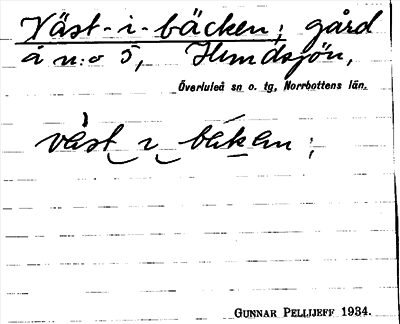 Väst-i-bäcken; gård
å n:o 5, Hundsjön,
Överluleå sn o. tg, Norrbottens län.
väst i bäken;
GUNNAR PELLIJEFF 1934.